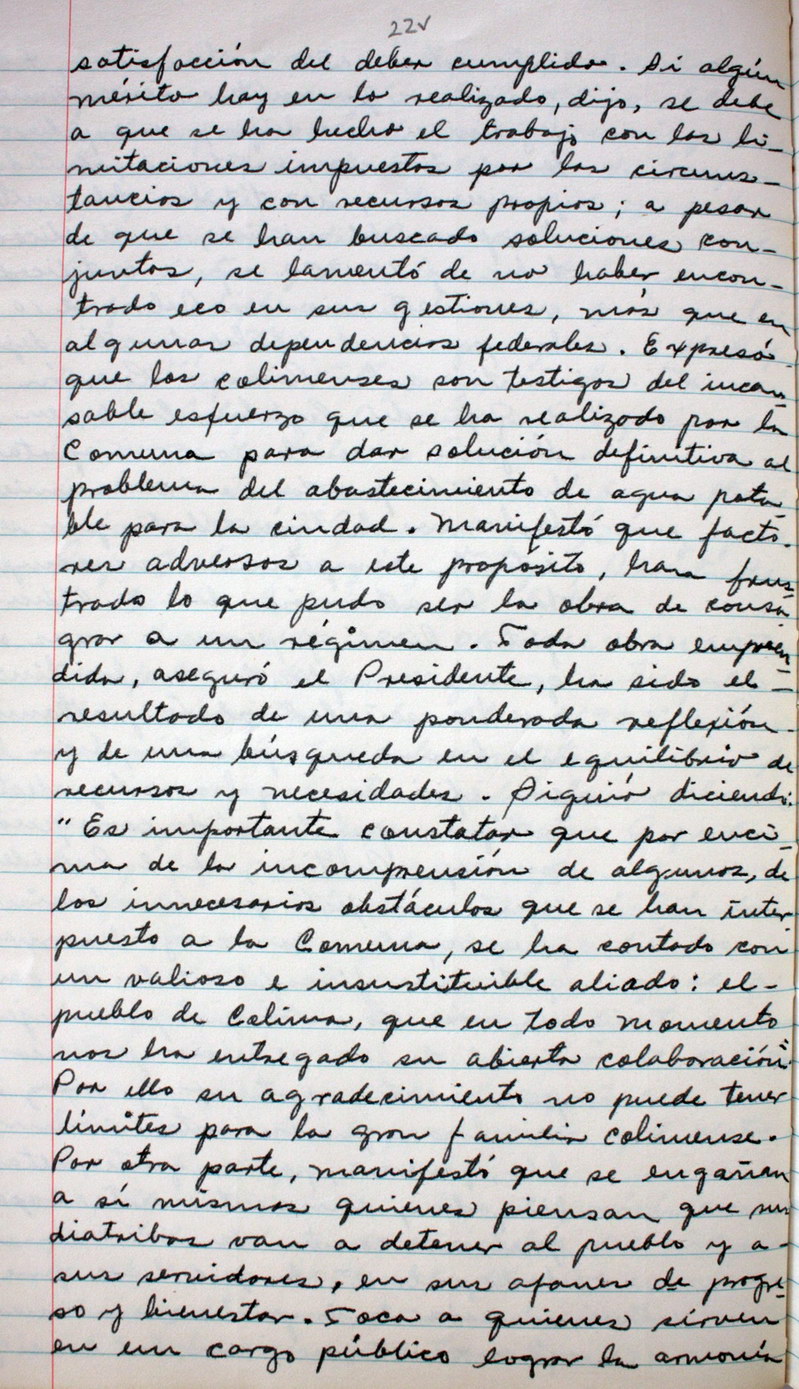 22v
satisfacción del deber cumplido. Si algún
mérito hay en lo realizado, dijo, se debe
a que se ha hecho el trabajo con las li-
mitaciones impuestas por las circuns-
tancias y con recursos propios; a pesar
de que se han buscado soluciones con-
juntas, se lamentó de no haber encon-
trado eco en sus gestiones, más que en
algunas dependencias federales. Expresó
que los colimenses son testigos del incan-
sable esfuerzo que se ha realizado por la
Comuna para dar solución definitiva al
problema del abastecimiento de agua pota-
ble para la ciudad. Manifestó que facto-
res adversos a este propósito, han frus-
trado lo que pudo ser la obra de consa-
grar a un régimen. Toda obra empren-
dida, aseguró el Presidente, ha sido el -
resultado de una ponderada reflexión -
y de una búsqueda en el equilibrio de
recursos y necesidades. Siguió diciendo:
"Es importante constatar que por enci-
ma de la incomprensión de algunos, de
los innecesarios obstáculos que se han inter
puesto a la Comuna, se ha contado con
un valioso e insustituible aliado: el -
pueblo de Colima, que en todo momento
nos ha entregado su abierta colaboración".
Por ello su agradecimiento no puede tener
límites para la gran familia colimense.
Por otra parte, manifestó que se engañan
a sí mismos quienes piensan que sus
diatribas van a detener al pueblo y a -
sus servidores, en sus afanes de progre-
so y bienestar. Toca a quienes sirven
en un cargo público lograr la armonía